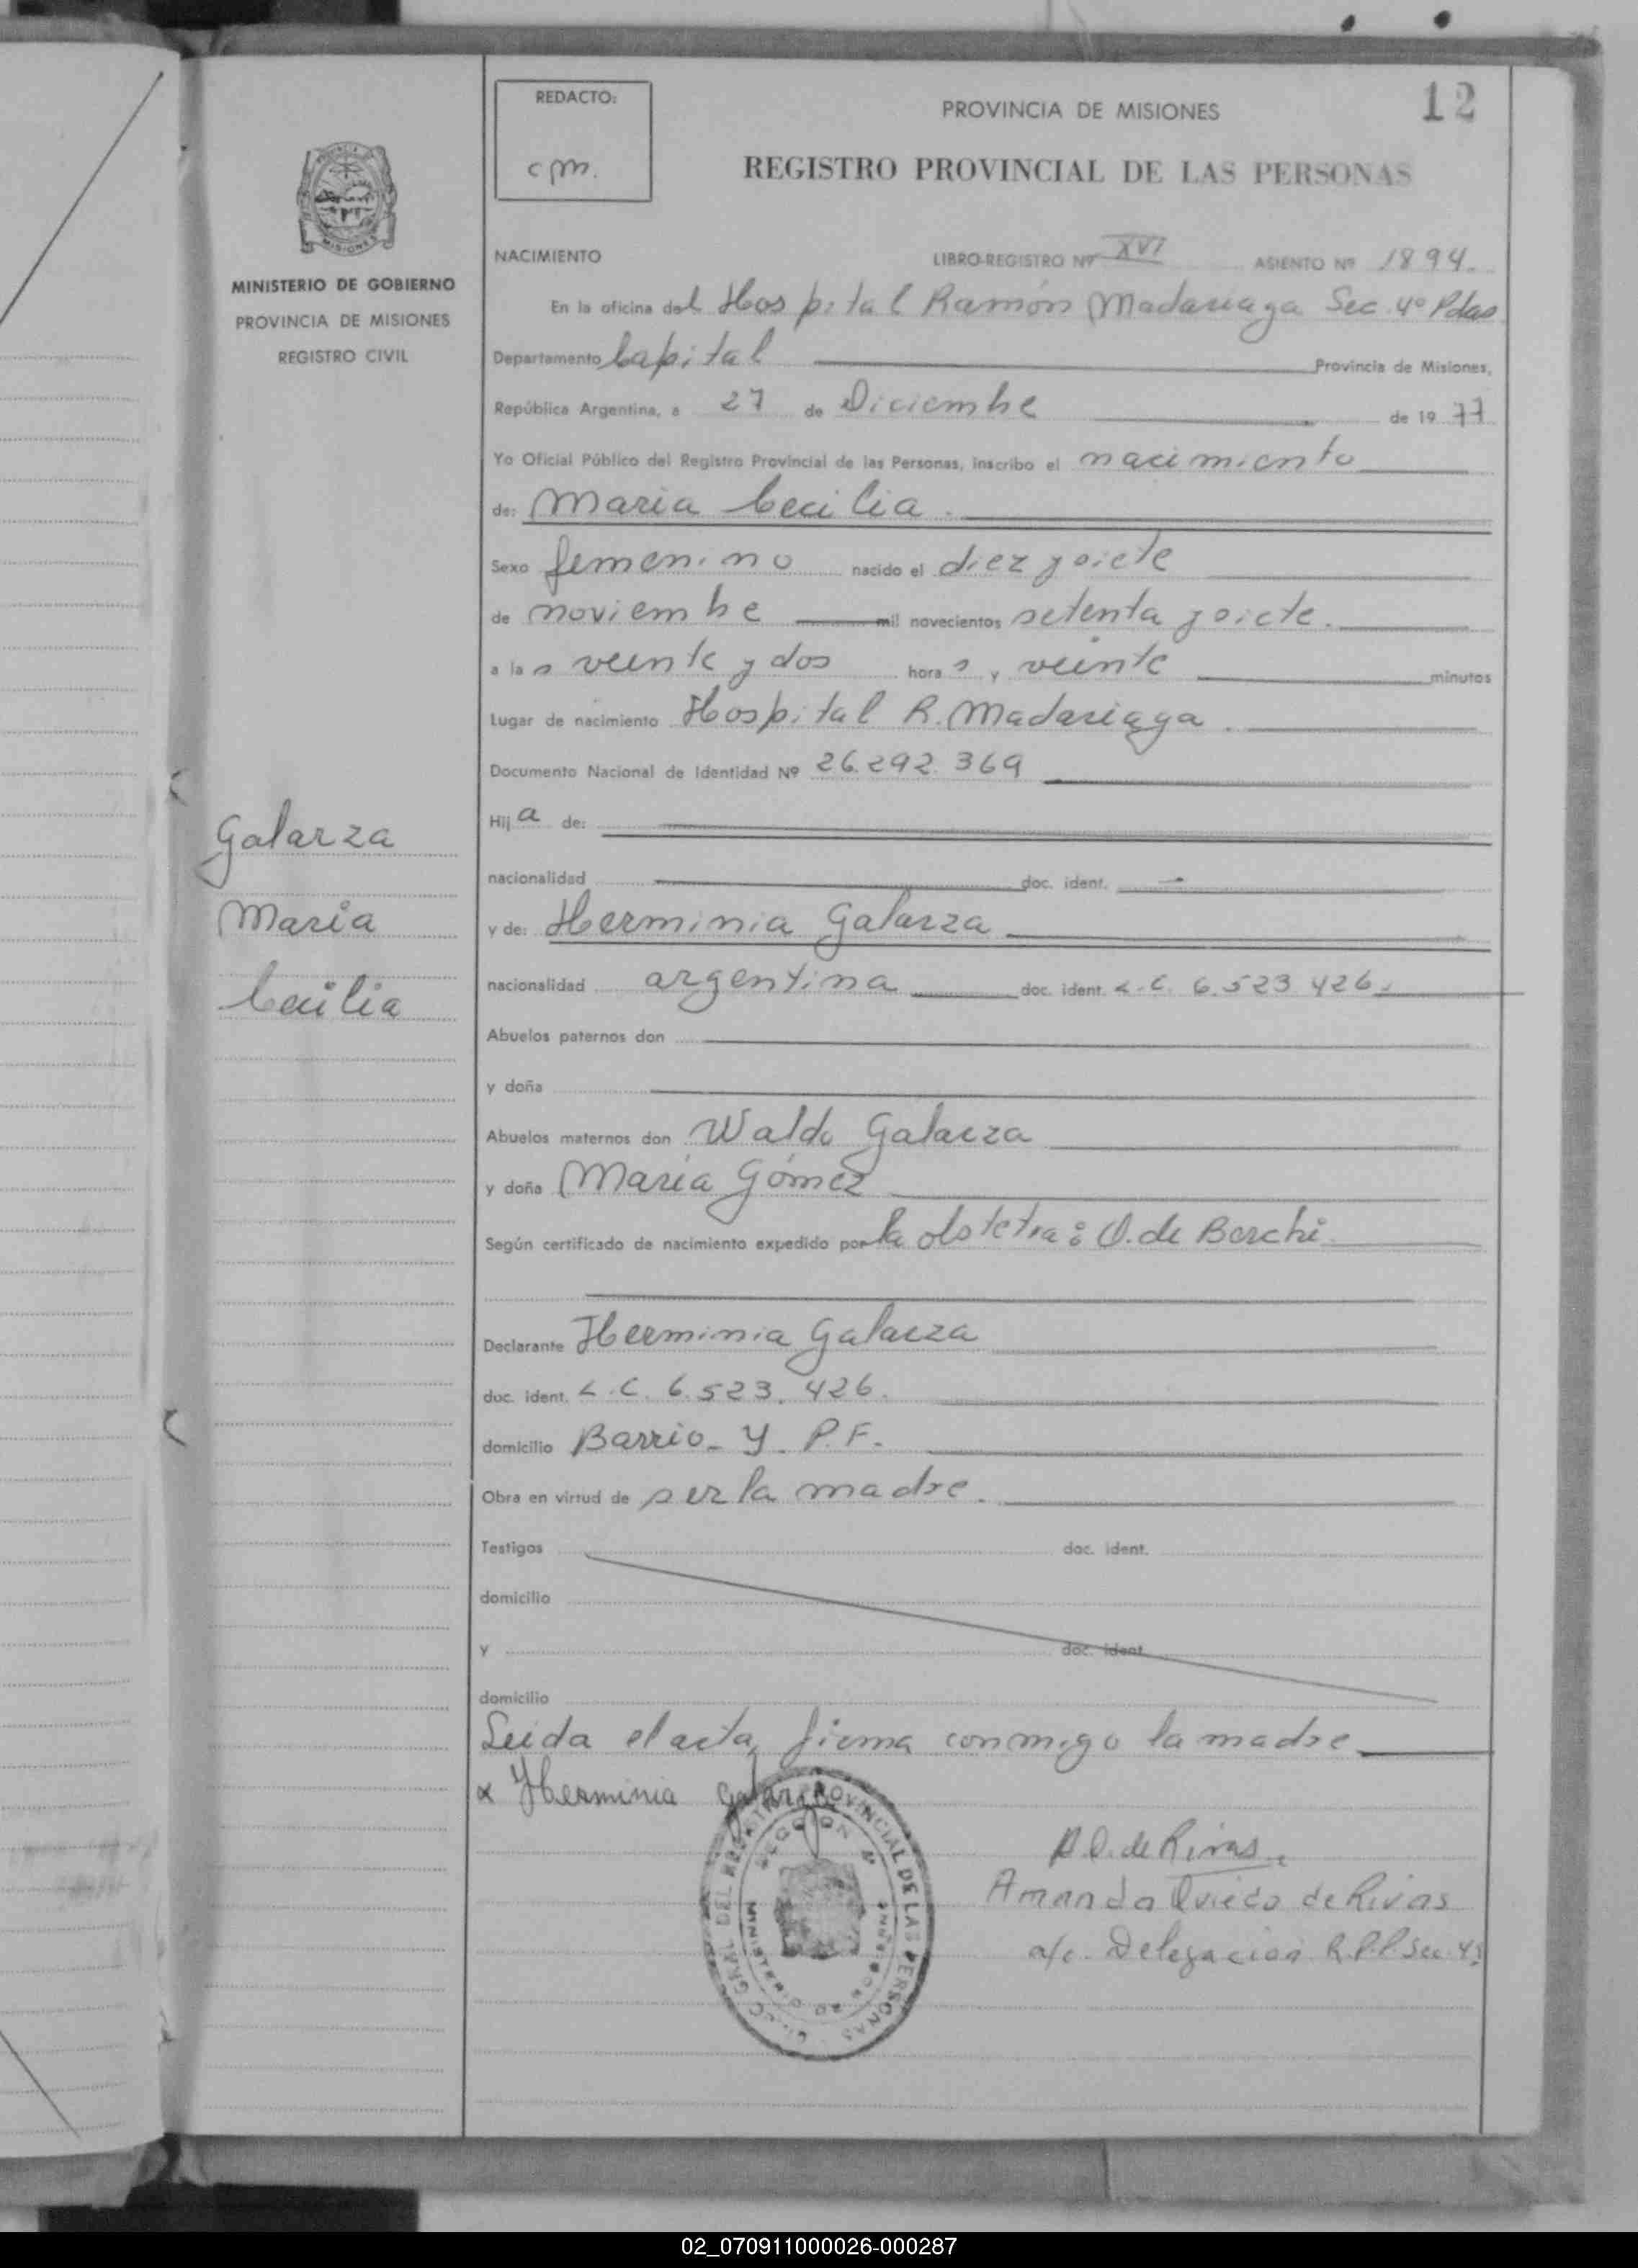 12
REDACTO:
cpm.
PROVINCIA DE MISIONES
REGISTRO PROVINCIAL DE LAS PERSONAS
MISIONES
MINISTERIO DE GOBIERNO
PROVINCIA DE MISIONES
REGISTRO CIVIL
NACIMIENTO LIBRO-REGISTRO Nº XVI ASIENTO Nº 1894.
En la oficina del Hospital Ramón Madariaga Sec. 4º Pdas
Departamento Capital Provincia de Misiones,
República Argentina, a 27 de Diciembre de 1977
Yo Oficial Público del Registro Provincial de las Personas, inscribo el nacimiento
de: Maria Cecilia.
Sexo femenino nacido el diez y siete
de noviembre mil novecientos setenta y siete.
a las veinte y dos horas y veinte minutos
Lugar de nacimiento Hospital R. Madariaga.
Documento Nacional de Identidad Nº 26.292.369
Hija de:
nacionalidad doc. ident.
y de: Herminia Galarza
nacionalidad argentina doc. ident. L.C. 6.523.426.
Abuelos paternos don
y doña
Abuelos maternos don Waldo Galarza
y doña María Gómez
Según certificado de nacimiento expedido por la obstetra: O. de Berchi
Declarante Herminia Galarza
doc. ident. L.C. 6.523.426.
domicilio Barrio Y. P.F.
Obra en virtud de ser la madre.
Testigos doc. ident.
domicilio
Y doc. ident.
domicilio
Leida el acta, firma conmigo la madre
x Herminia Galarza
Galarza
Maria
Cecilia
GRAL DEL REGISTRO PROVINCIAL DE LAS PERSONAS
SECCION
MINISTERIO DE GOBIERNO
A O. de Rivas
Amanda Oviedo de Rivas
a/c. Delegación R.P.P Sec. 4ª
02_070911000026-000287